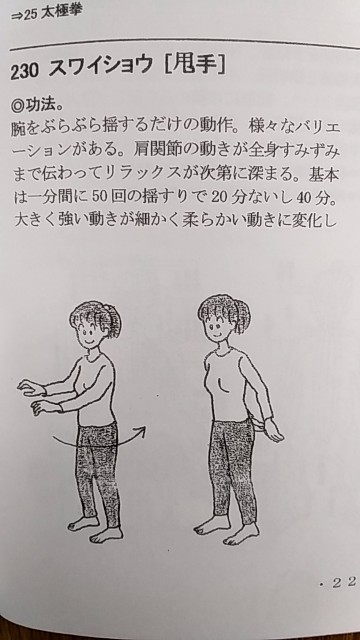 ⇒25 太極拳
230 スワイショウ［甩手］
◎功法。
腕をぶらぶら揺するだけの動作。様々なバリエ
ーションがある。肩関節の動きが全身すみずみ
まで伝わってリラックスが次第に深まる。基本
は一分間に50回の揺すりで20分ないし40分。
大きく強い動きが細かく柔らかい動きに変化し
・22